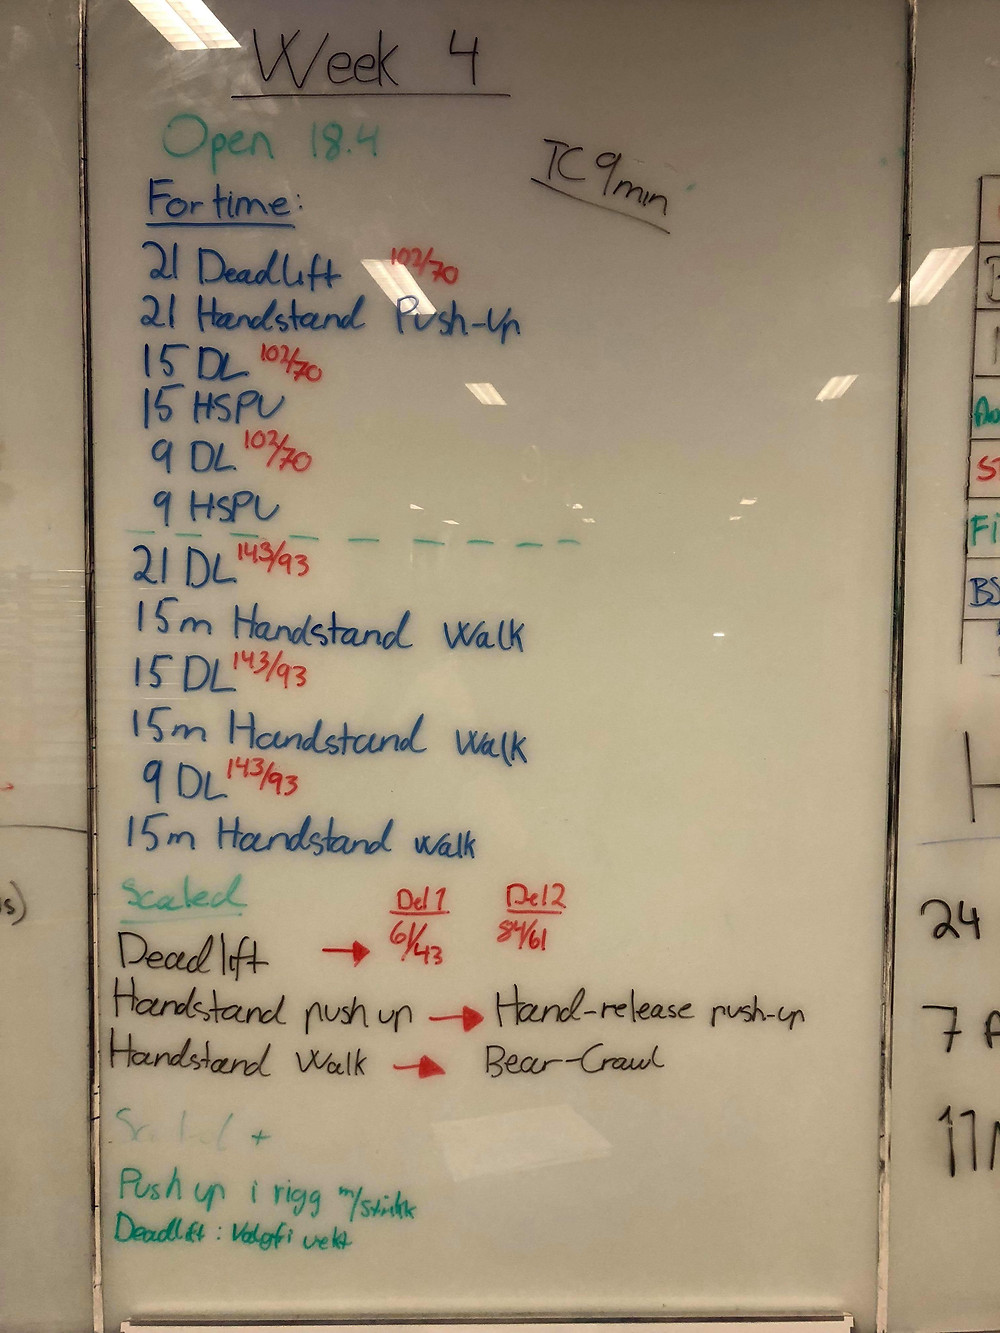 Week 4
Open 18.4
TC 9min
For time:
21 Deadlift 102/70
21 Handstand Push-Up
15 DL 102/70
15 HSPU
9 DL 102/70
9 HSPU
21 DL 143/93
15m Handstand Walk
15 DL 143/93
15m Handstand Walk
9 DL 143/93
15m Handstand Walk
Scaled
Del 1 Del 2
Deadlift → 61/43 84/61
Handstand push up → Hand-release push-up
Handstand Walk → Bear-Crawl
Scaled +
Push up i rigg m/strikk
Deadlift: Valgfri vekt
24
7
11